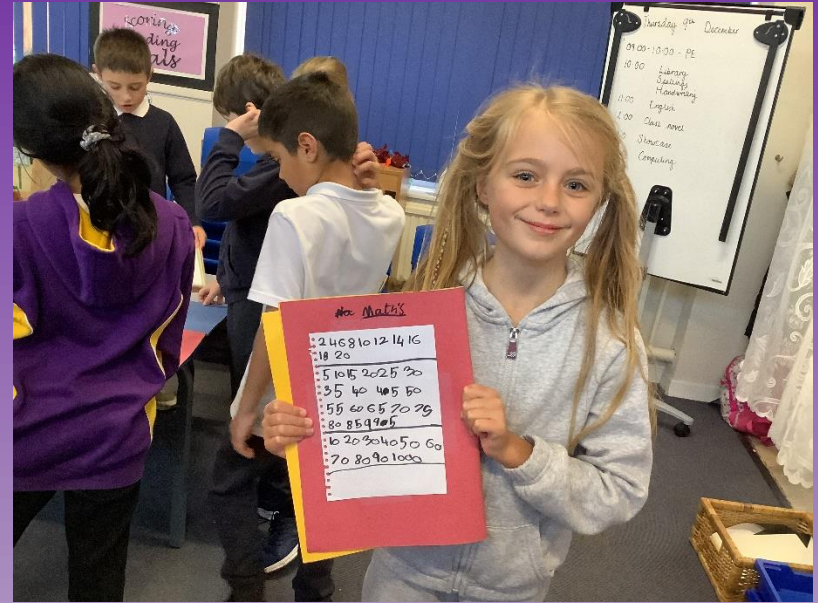 scoring
ding
als
Thursday 9th December
09:00-10:00 - PE
10:00 Library
Spellings
Handwriting
11:00 English
:00 Class novel
Showcase
Computing
Maths
2 4 6 8 10 12 14 16
18 20
5 10 15 20 25 30
35 40 405 50
55 60 65 70 75
80 85 9905
10 20 30 40 50 60
70 80 90 1000